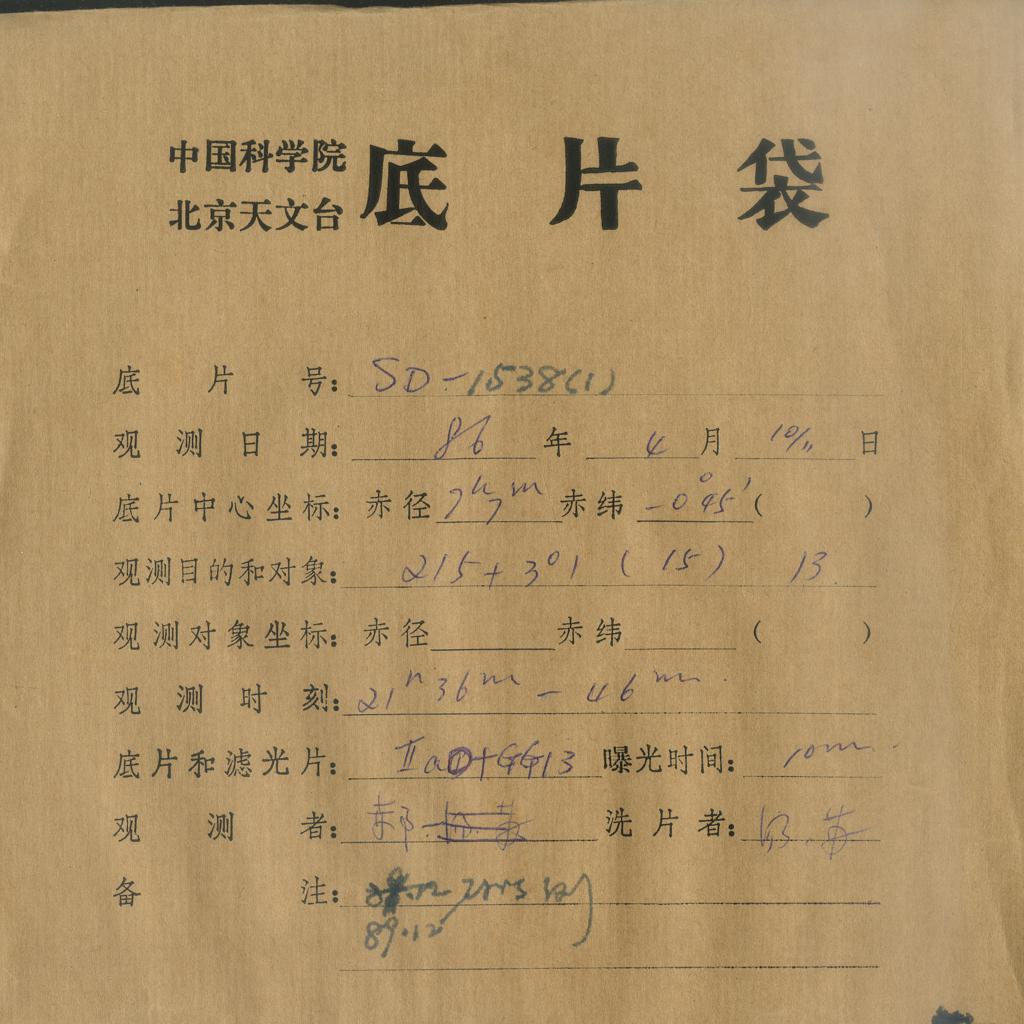 中国科学院
北京天文台
底片袋
底片号: SD-1538(1)
观测日期: 86年 4月 10/11日
底片中心坐标: 赤径 7h7m 赤纬 -0°45′( )
观测目的和对象: 215+3°1 (15) 13
观测对象坐标: 赤径 赤纬 ( )
观测时刻: 21h36m-46m
底片和滤光片: IIaO+GG13 曝光时间: 10m
观测者: 郝 洗片者:
备注:
89.12